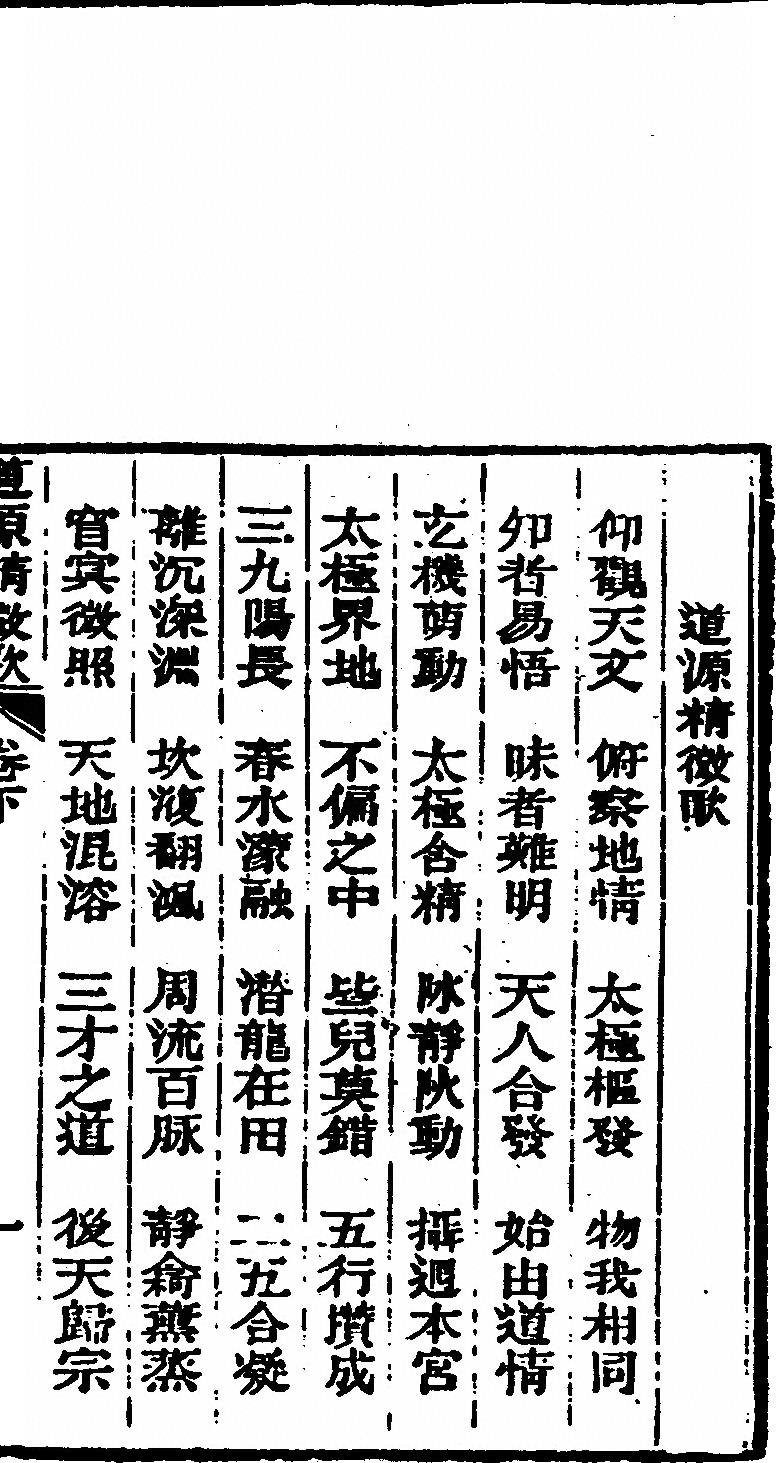 道源精微歌
仰觀天文 俯察地情 太極樞發 物我相同
卯者易悟 昧者難明 天人合發 始由道情
玄機萌動 太極含精 脉靜陜動 攝廻本宮
太極界地 不偏之中 些兒莫錯 五行攢成
三九陽長 春水濛融 潛龍在田 二五合凝
離沉深淵 坎復翻渢 周流百脉 靜龠薰蒸
窅冥微照 天地混溶 三才之道 後天歸宗
道原精微歌 卷下 一